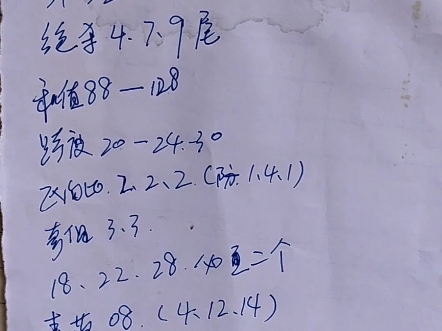 绝杀4.7.9尾
和值88—128
跨度20—24.30
区间比.2.2.2.(防.1.4.1)
奇偶3.3.
18、22.28.必直二个
08.(4.12.14)